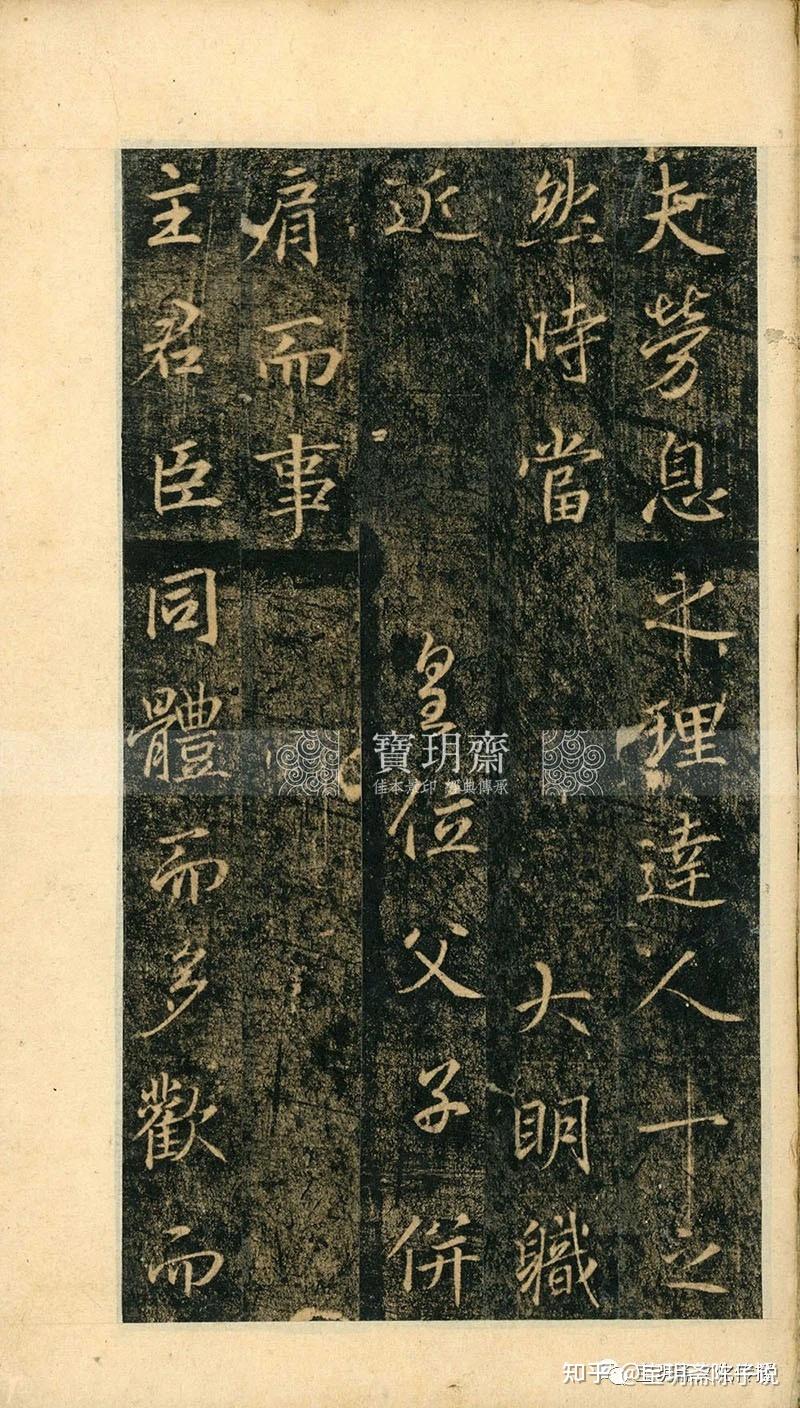 夫勞息之理達人一十之
然時當大明軄
近皇位父子併
肩而事
主君臣同體而多歡而
寶玥齋
佳本是印 經典傳承
知乎 @宝玥斋陈仔说